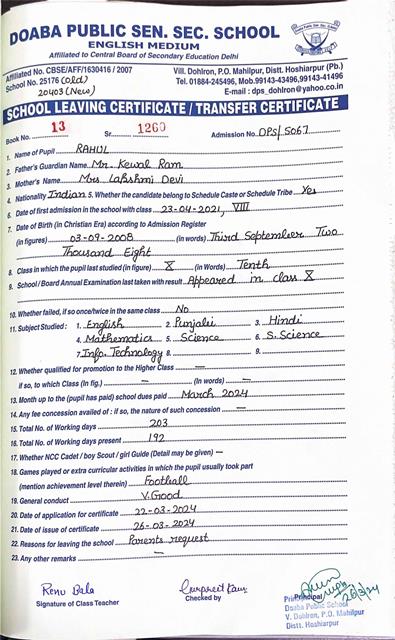 DOABA PUBLIC SEN. SEC. SCHOOL
ENGLISH MEDIUM
Affiliated to Central Board of Secondary Education Delhi
Affiliated No. CBSE/AFF/1630416 / 2007
School No. 25176 (Old)
20403 (New)
Vill. Dohlron, P.O. Mahilpur, Distt. Hoshiarpur (Pb.)
Tel. 01884-245496, Mob.99143-43496,99143-41496
E-mail : dps_dohlron@yahoo.co.in
SCHOOL LEAVING CERTIFICATE / TRANSFER CERTIFICATE
Book No. 13 Sr. 1260 Admission No. DPS/5067
1. Name of Pupil RAHUL
2. Father's Guardian Name Mr. Kewal Ram
3. Mother's Name Mrs Lakshmi Devi
4. Nationality Indian 5. Whether the candidate belong to Schedule Caste or Schedule Tribe Yes
6. Date of first admission in the school with class 23-04-2021, VIII
7. Date of Birth (in Christian Era) according to Admission Register
(in figures) 03-09-2008 (in words) Third September Two
Thousand Eight
8. Class in which the pupil last studied (in figure) X (in Words) Tenth
9. School / Board Annual Examination last taken with result Appeared in class X
10. Whether failed, if so once/twice in the same class No
11. Subject Studied : 1. English 2. Punjabi 3. Hindi
4. Mathematics 5. Science 6. S. Science
7. Info. Technology 8. 9.
12. Whether qualified for promotion to the Higher Class —
if so, to which Class (In fig.) — (In words) —
13. Month up to the (pupil has paid) school dues paid March 2024
14. Any fee concession availed of : if so, the nature of such concession —
15. Total No. of Working days 203
16. Total No. of Working days present 192
17. Whether NCC Cadet / boy Scout / girl Guide (Detail may be given) —
18. Games played or extra curricular activities in which the pupil usually took part
(mention achievement level therein) Football
19. General conduct V.Good
20. Date of application for certificate 22-03-2024
21. Date of issue of certificate 26-03-2024
22. Reasons for leaving the school Parents request
23. Any other remarks —
Renu Bala
Signature of Class Teacher
Gurpreet Kaur
Checked by
26/3/24
Principal
Doaba Public School
V. Dohlron, P.O. Mahilpur
Distt. Hoshiarpur